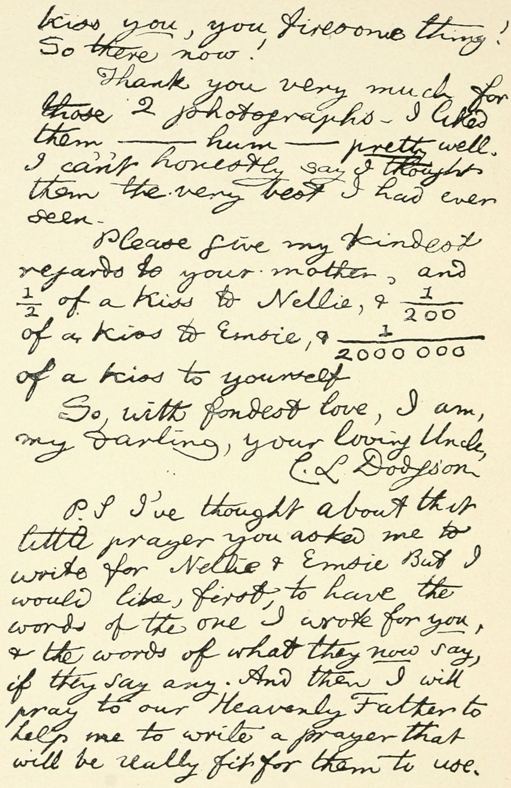 kiss you, you tiresome thing!
So there now!
Thank you very much for
those 2 photographs - I liked
them — hum — pretty well.
I can't honestly say I thought
them the very best I had ever
seen.
Please give my kindest
regards to your mother, and
1/2 of a kiss to Nellie, & 1/200
of a kiss to Emsie, & 1/2000000
of a kiss to yourself
So, with fondest love, I am,
my darling, your loving Uncle,
C. L. Dodgson
P.S I've thought about that
little prayer you asked me to
write for Nellie & Emsie But I
would like, first, to have the
words of the one I wrote for you,
& the words of what they now say,
if they say any. And then I will
pray to our Heavenly Father to
help me to write a prayer that
will be really fit for them to use.